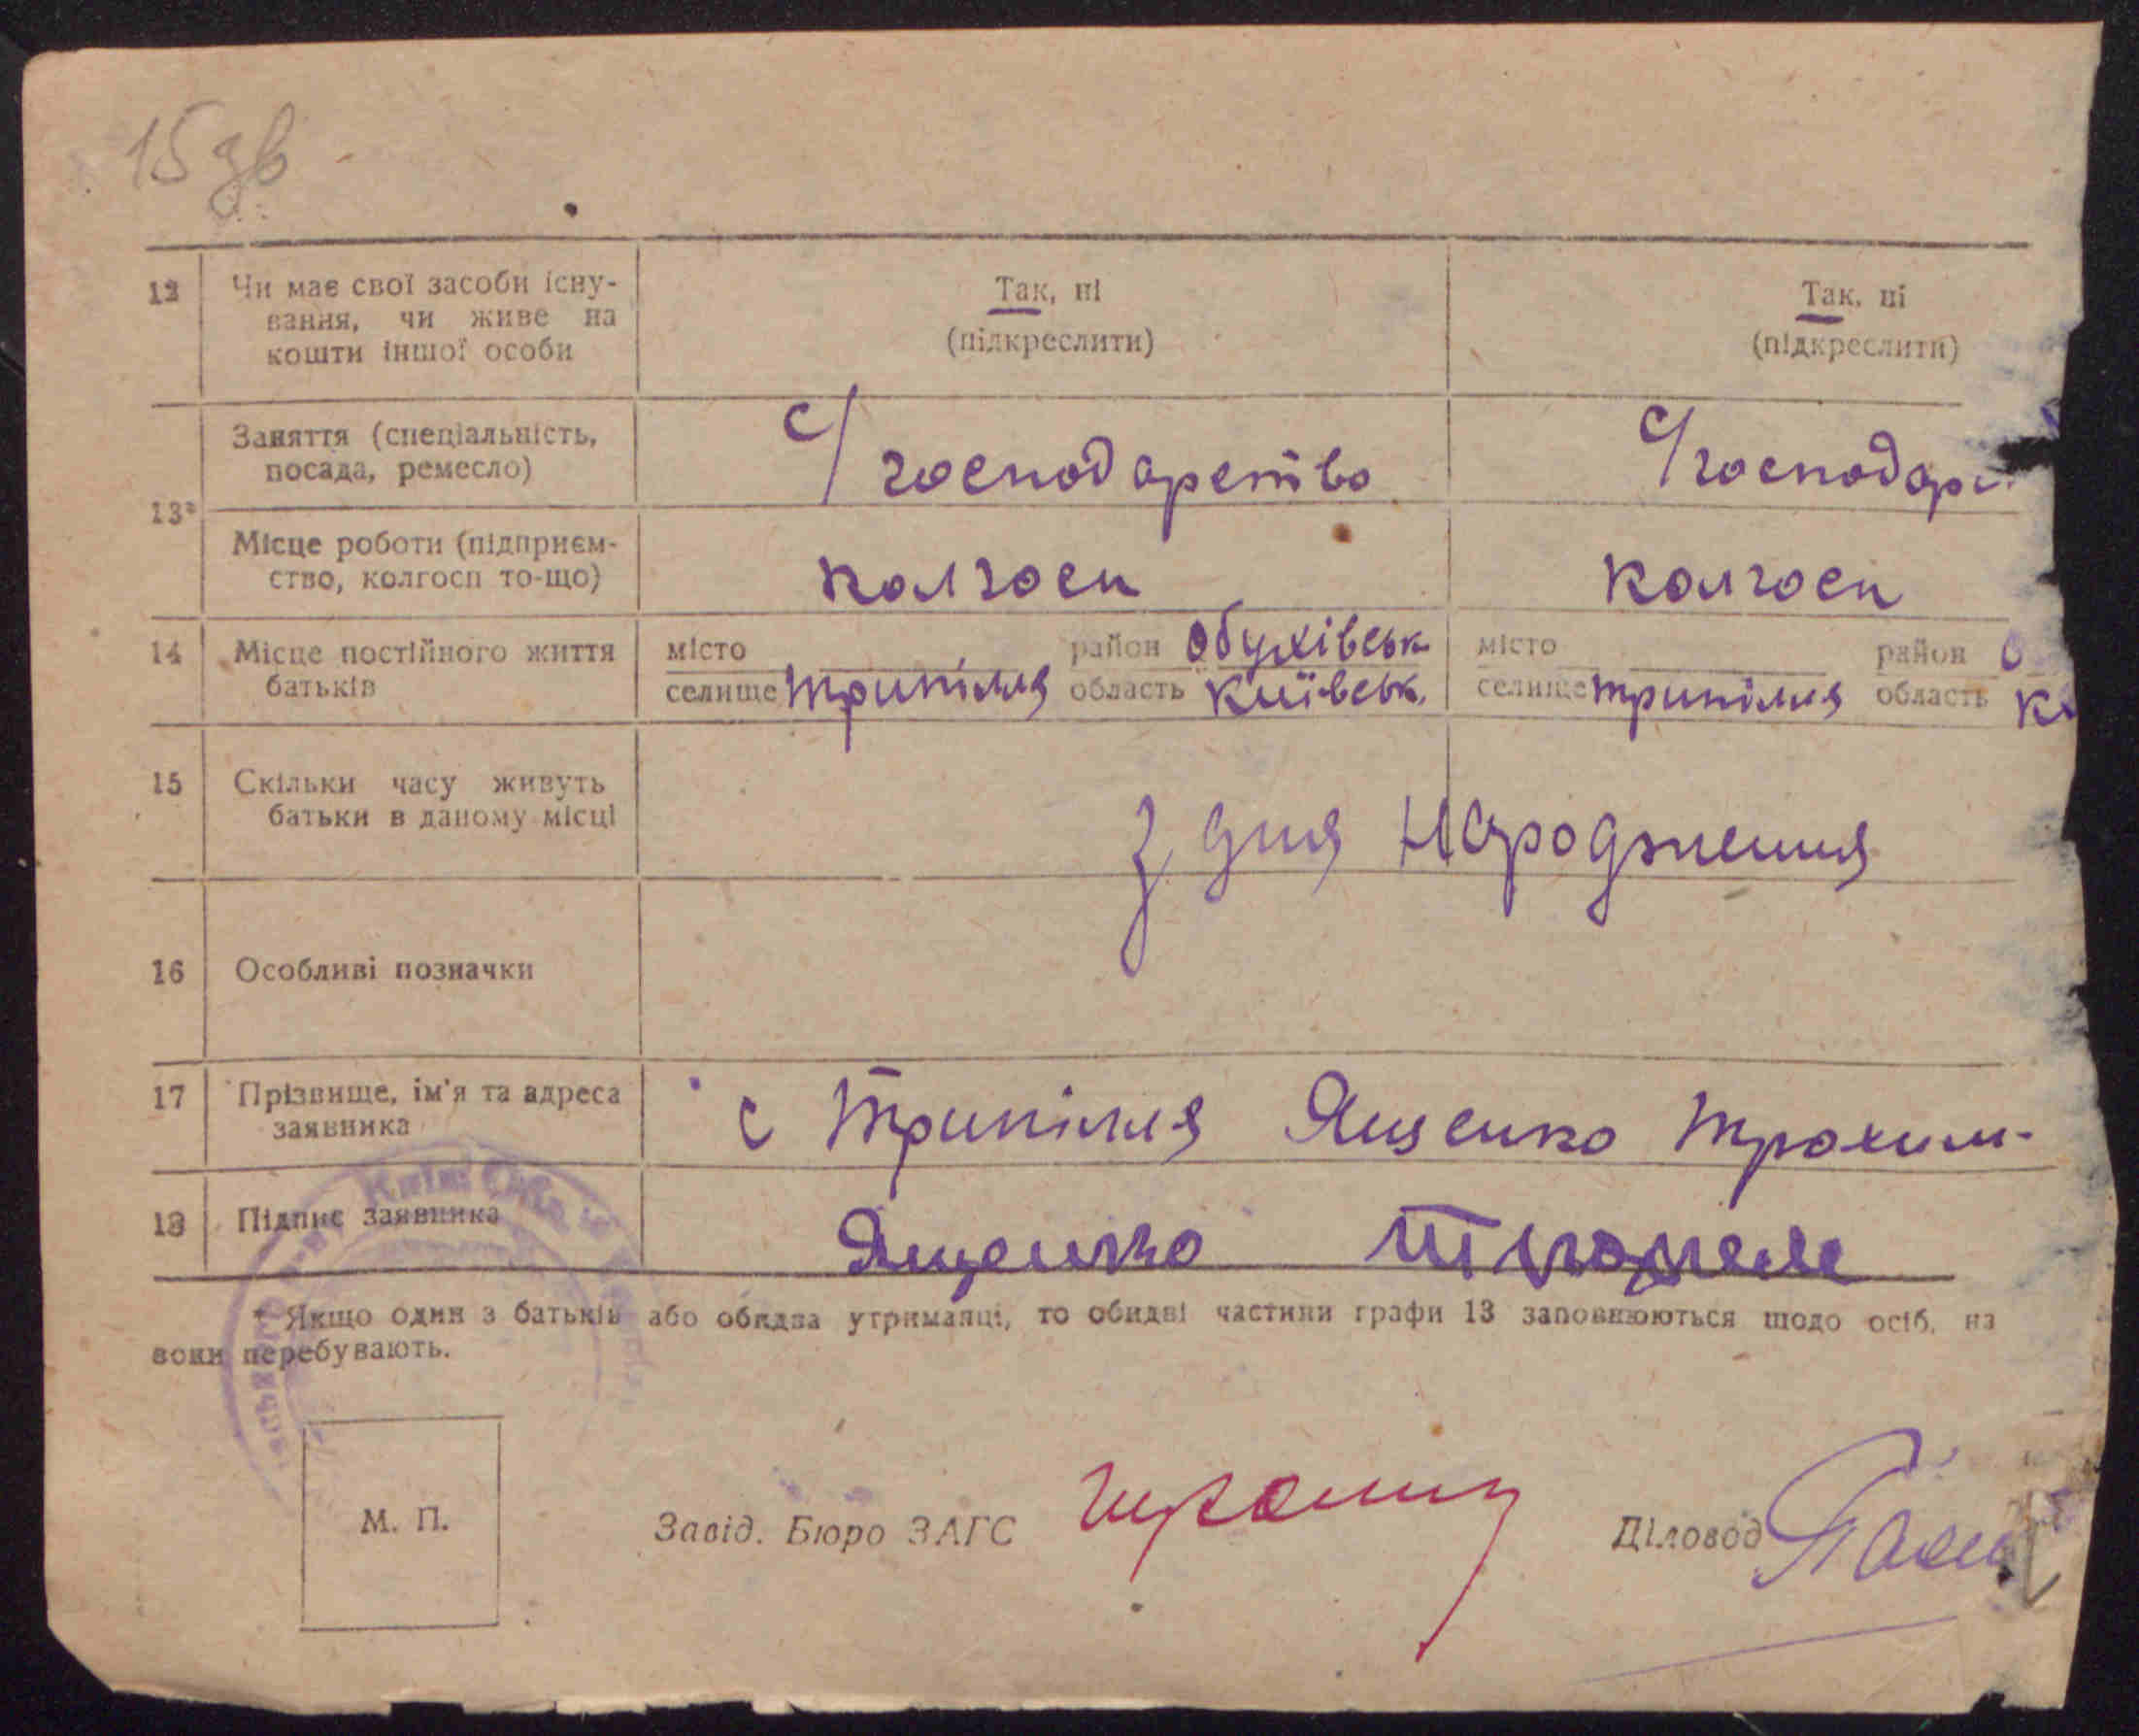 15 зв
12 Чи має свої засоби існу- Так, ні Так, ні
вання, чи живе на (підкреслити) (підкреслити)
кошти іншої особи
Заняття (спеціальність, с/господарство с/господар
посада, ремесло)
13*
Місце роботи (підприєм- колгосп колгосп
ство, колгосп то-що)
14 Місце постійного життя місто район Обухівськ місто район О
батьків селище Трипілля область Київськ. селище Трипілля область К
15 Скільки часу живуть з дня народження
батьки в даному місці
16 Особливі позначки
17 Прізвище, ім'я та адреса с Трипілля Ященко Трохим-
заявника
18 Підпис заявника Ященко
* Якщо один з батьків або обидва утриманці, то обидві частини графи 13 заповнюються щодо осіб, на
вони перебувають.
М. П. Завід. Бюро ЗАГС Діловод